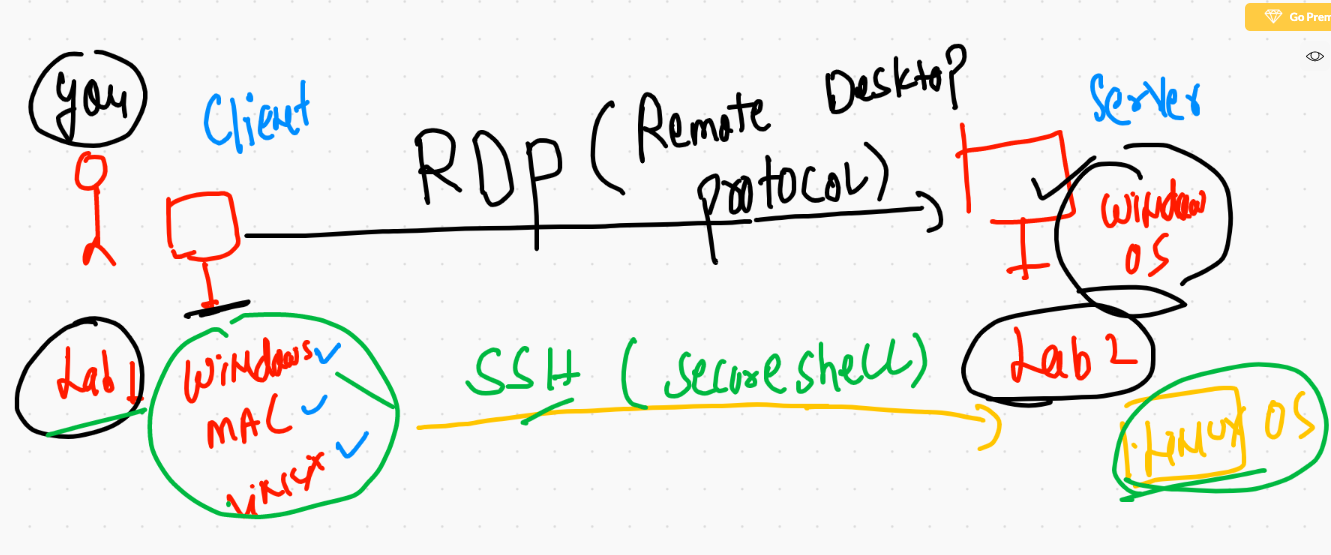 Go Prem
you
Client
RDP (Remote Desktop
protocol)
Server
Window
OS
Lab 1
Windows
MAC
Linux
SSH (secure shell)
Lab 2
Linux OS